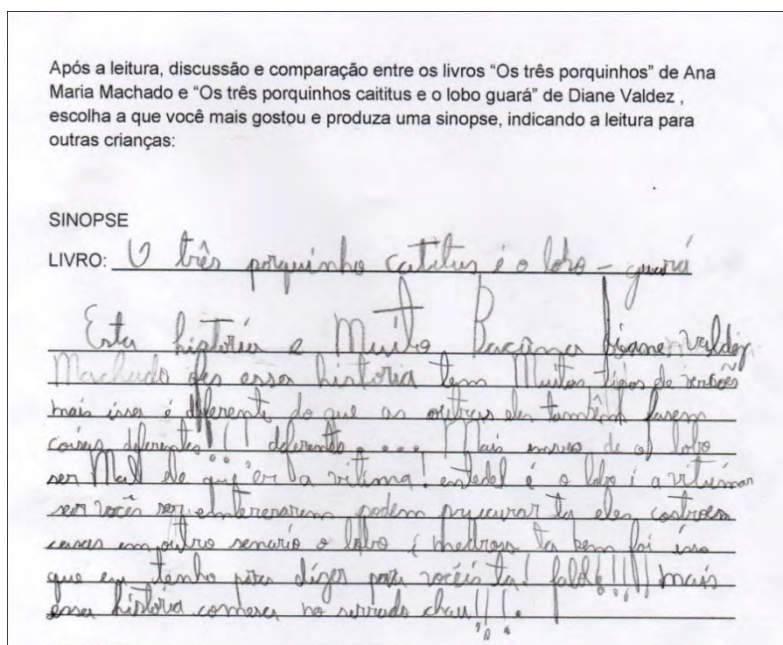 Após a leitura, discussão e comparação entre os livros “Os três porquinhos” de Ana
Maria Machado e “Os três porquinhos caititus e o lobo guará” de Diane Valdez ,
escolha a que você mais gostou e produza uma sinopse, indicando a leitura para
outras crianças:
SINOPSE
LIVRO: O três porquinho catitus é o lobo - guará
Esta história e Muito Bacana Diane Valdez
Machado fes essa história tem Muitos tipos de versões
mais issa é diferenti do que as outras eles também fasem
coisas diferentes!!! diferente.... Mais envez de o lobo
ser Mal ele que er a vitima! entedel é o lobo i a vitima
ser vocês ser enteresarem podem prucurar ta eles controem
casas em outro senário o lobo é medroso ta bem foi isso
que eu tenho para dizer para vocêis ta! falo!!!!! mais
essa história comesa no serrado chau!!!.